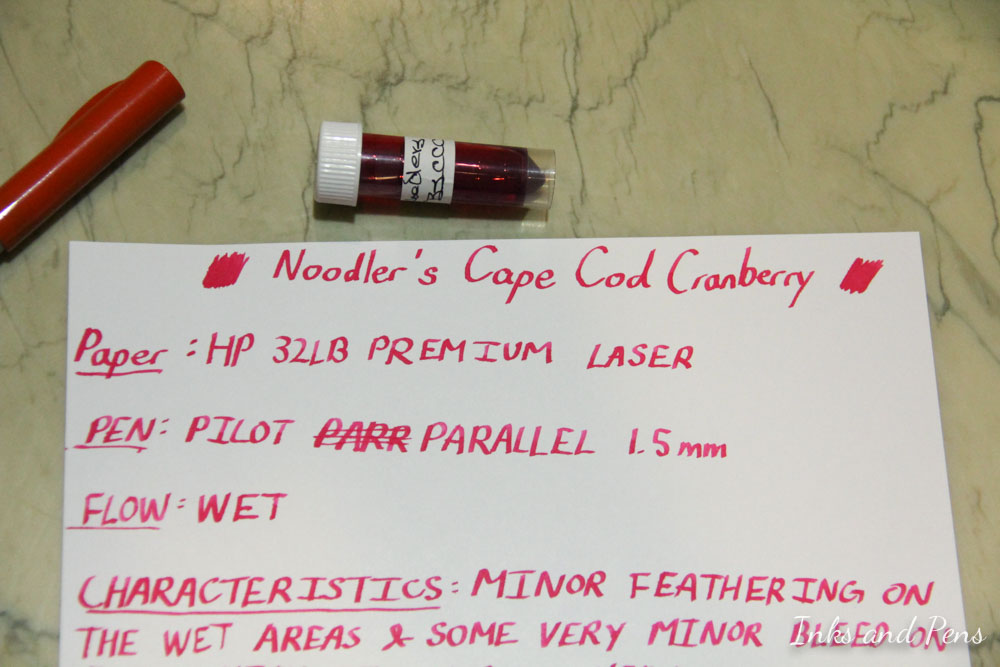 Noodler's Cape Cod Cranberry
Paper: HP 32LB PREMIUM LASER
PEN: PILOT PARR PARALLEL 1.5mm
FLOW: WET
CHARACTERISTICS: MINOR FEATHERING ON
THE WET AREAS & SOME VERY MINOR BLEED ON
Inks and Pens